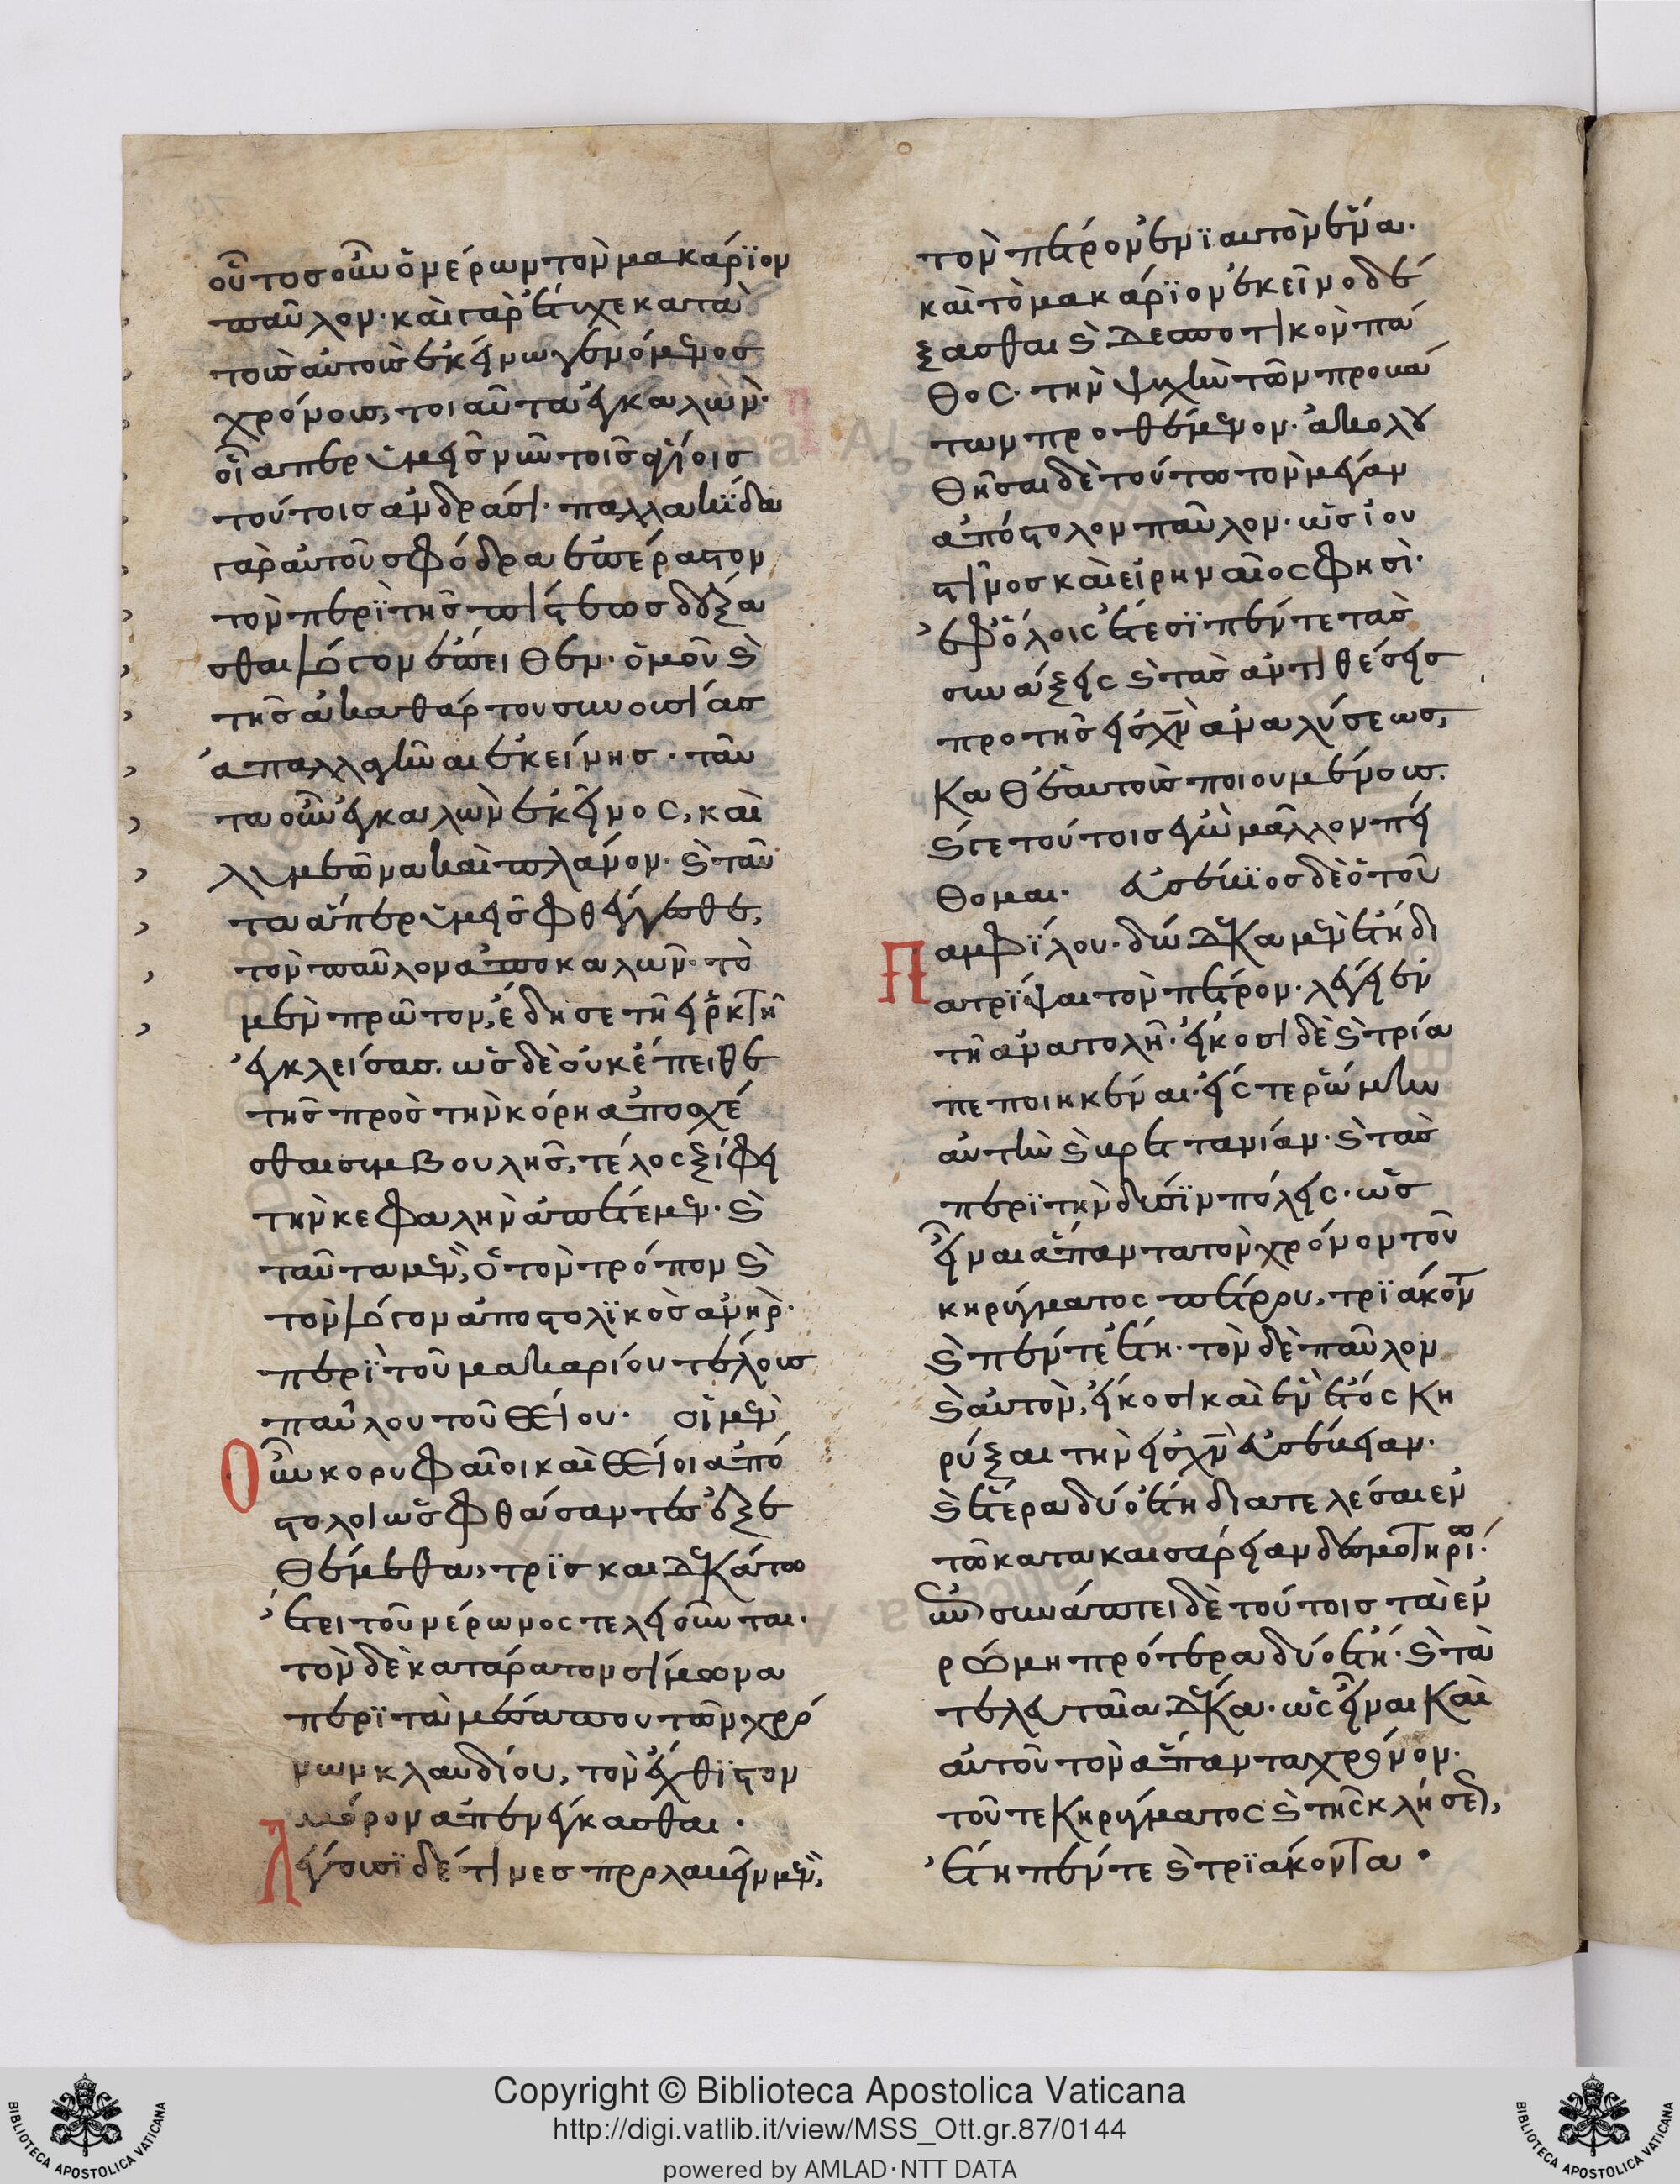 οὗτος οὖν ὁ νέρων τὸν μακάριον
παῦλον· καὶ γὰρ ἔτυχε κατὰ
τοὺς αὐτοὺς ἐκείνω γενόμενος
χρόνους, τοιαῦτα ἐγκαλῶν·
οἷαπερ ὑμεῖς νῦν τοῖς ἁγίοις
τούτοις ἀνδράσι· παλλακίδα
γὰρ αὐτοῦ σφόδρα ἐπέραστον
τὸν περὶ τῆς πίστεως δέξα
σθαι λόγον ἔπειθεν· ὁμοῦ καὶ
τῆς ἀκαθάρτου συνουσίας
ἀπαλλαγῆναι ἐκείνης· ταῦ
τα οὖν ἐγκαλῶν ἐκεῖνος, καὶ
λυμεῶνα καὶ πλάνον· καὶ ταῦ
τα ἅπερ ὑμεῖς φθέγγεσθε,
τὸν παῦλον ἀποκαλῶν· τὸ
μὲν πρῶτον, ἔδησε τῆ εἱρκτῆ
ἐγκλείσας. ὡς δὲ οὐκ ἔπειθε
τῆς πρὸς τὴν κόρην ἀποσχέ
σθαι συμβουλῆς, τέλος ξίφει
τὴν κεφαλὴν ἀπέτεμεν· καὶ
ταῦτα μὲν, ὁ τὸν τρόπον καὶ
τὸν λόγον ἀποστολικὸς ἀνὴρ·
περὶ τοῦ μακαρίου τέλους
παύλου τοῦ θείου· οἱ μὲν
Οὖν κορυφαῖοι καὶ θεῖοι ἀπό
στολοι ὡς φθάσαντες ἐξε
θέμεθα, τρὶς καὶ δεκάτω
ἔτει τοῦ νέρωνος τελειοῦνται.
τὸν δὲ κατάρατον σίμωνα
περὶ τὰ μέσα που τῶν χρό
νων κλαυδίου, τὸν ἔχθιστον
μόρον ἀπενέγκασθαι·
Λέγουσι δέ τινες προλαβεῖν μὲν,
τὸν πέτρον ἐνιαυτὸν ἕνα·
καὶ τὸ μακάριον ἐκεῖνο δέ
ξασθαι καὶ δεσποτικὸν πά
θος· τὴν ψυχὴν τῶν προβά
των προθέμενον· ἀκολου
θῆσαι δὲ τούτω τὸν μέγαν
ἀπόστολον παῦλον· ὡς ἰου
στῖνος καὶ εἰρηναῖος φησί·
ἐφ' ὅλοις ἔτεσι πέντε τὰς
συνάξεις καὶ τὰς ἀντιθέσεις
πρὸ τῆς εἰς χ̅ν̅ ἀναλύσεως,
καθ' ἑαυτοὺς ποιουμένους.
καί γε τούτοις ἐγὼ μᾶλλον πεί
θομαι· εὐσέβιος δὲ ὁ τοῦ
Παμφίλου· δώδεκα μὲν ἔτη δι
ατρίψαι τὸν πέτρον· λέγει ἐν
τῆ ἀνατολῆ· εἴκοσι δὲ καὶ τρία
πεποιηκέναι· εἴς τε ῥώμην
αὐτὴν καὶ βρεττανίαν· καὶ τὰς
περὶ τὴν δύσιν πόλεις· ὡς
εἶναι ἅπαντα τὸν χρόνον τοῦ
κηρύγματος πέτρου, τριάκοντα
καὶ πέντε ἔτη· τὸν δὲ παῦλον
καὶ αὐτὸν, εἴκοσι καὶ ἓν ἔτος κη
ρύξαι τὴν εἰς χ̅ν̅ εὐσέβειαν·
καὶ ἕτερα δύο ἔτη διατελέσαι ἐν
τῶ κατὰ καισάρειαν δεσμωτηρίω·
οὐ συνάπτει δὲ τούτοις τὰ ἐν
ῥώμη πρότερα δύο ἔτη· καὶ τὰ
τελευταῖα δέκα· ὡς εἶναι καὶ
αὐτοῦ τὸν ἅπαντα χρόνον·
τοῦ τε κηρύγματος καὶ τῆς κλήσεως,
ἔτη πέντε καὶ τριάκοντα·
Copyright © Biblioteca Apostolica Vaticana
http://digi.vatlib.it/view/MSS_Ott.gr.87/0144
powered by AMLAD·NTT DATA
BIBLIOTECA APOSTOLICA VATICANA
BIBLIOTECA APOSTOLICA VATICANA